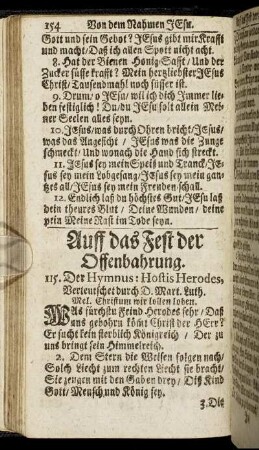 154 Von dem Nahmen JEsu.
Gott und sein Gebot? JEsus gibt mir Krafft
und macht/ Daß ich allen Spott nicht acht.
8. Hat der Bienen Honig-Safft/ Und der
Zucker süsse krafft? Mein hertzliebster JEsus
Christ/ Tausendmahl noch süsser ist.
9. Drum/ o JEsu/ will ich dich Immer lie-
ben festiglich! Du/ du JEsu solt allein Mei-
ner Seelen alles seyn.
10. JEsus/ was durch Ohren bricht/ JEsus/
was das Angesicht/ JEsus was die Zunge
schmeckt/ Und wonach die Hand sich streckt.
11. JEsus sey mein Speis und Tranck/ JE-
sus sey mein Lobgesang/ JEsus sey mein gan-
tzes all/ JEsus sey mein Freuden-schall.
12. Endlich laß du höchstes Gut/ JEsu laß
dein theures Blut/ Deine Wunden/ deine
pein Meine Rast im Tode seyn.
Auff das Fest der
Offenbahrung.
115. Der Hymnus: Hostis Herodes,
Verteutschet durch D. Mart. Luth.
Mel. Christum wir sollen loben.
WAs fürchstu Feind Herodes sehr/ Daß
uns gebohrn kömt Christ der HErr?
Er sucht kein sterblich Königreich/ Der zu
uns bringt sein Himmelreich.
2. Dem Stern die Weisen folgen nach/
Solch Liecht zum rechten Liecht sie bracht/
Sie zeugen mit den Gaben drey/ Diß Kind
Gott/ Mensch und König sey.
3. Die